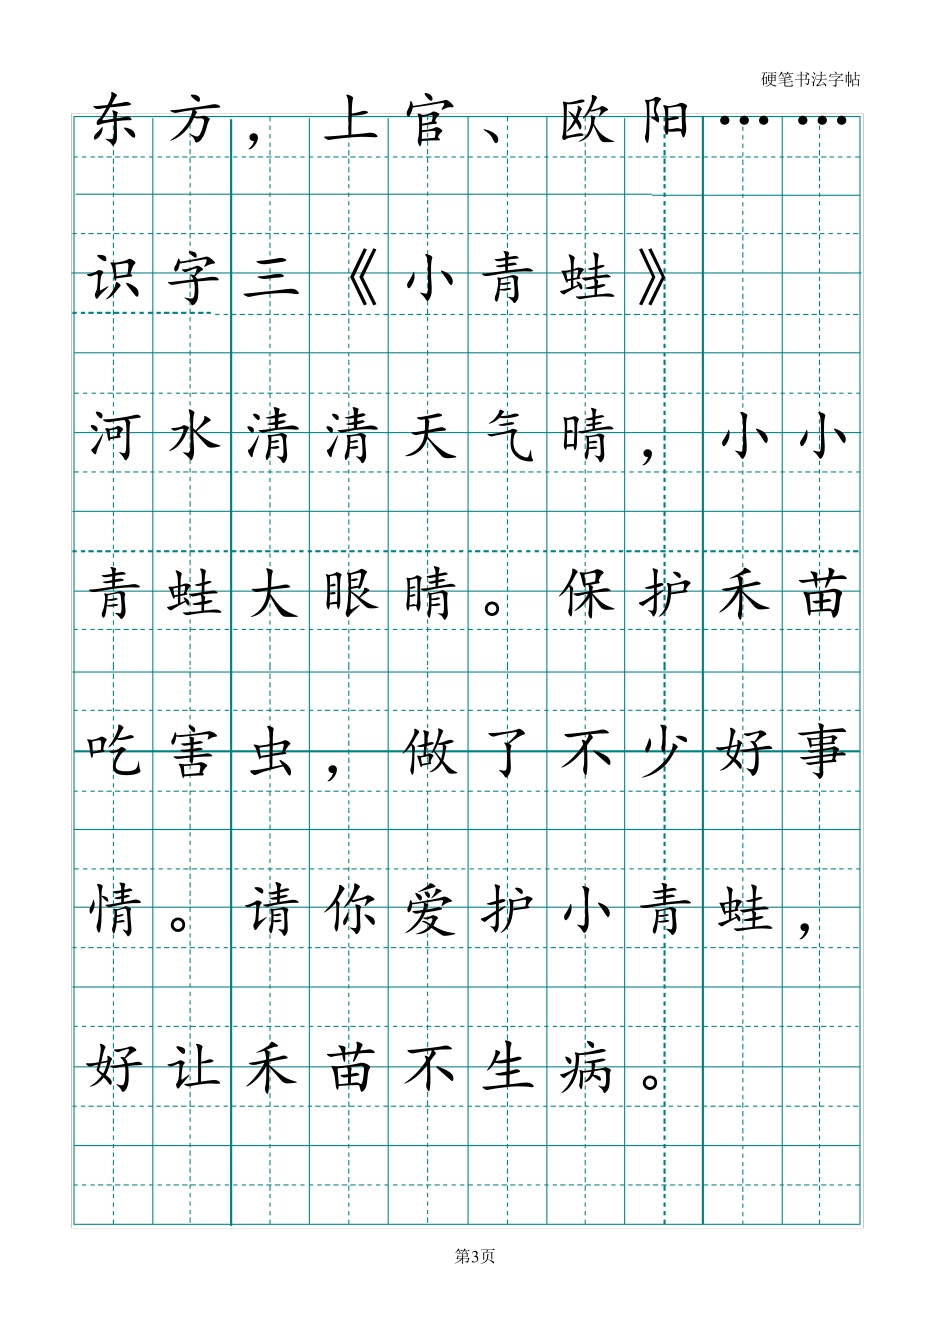 硬笔书法字帖
东方，上官、欧阳……
识字三《小青蛙》
河水清清天气晴，小小
青蛙大眼睛。保护禾苗
吃害虫，做了不少好事
情。请你爱护小青蛙，
好让禾苗不生病。
第3页